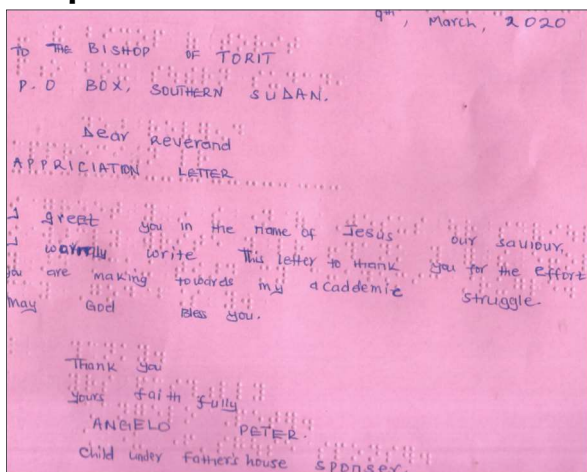 9th, March, 2020
TO THE BISHOP OF TORIT
P.O BOX, SOUTHERN SUDAN.
Dear Reverand
APPRICIATION LETTER
I greet you in the name of Jesus our saviour,
I warmly write This letter to thank you for the effort
you are making towards my academic struggle.
may God Bless you.
Thank you
yours faith fully
ANGELO PETER.
Child under Father's house Sponser.